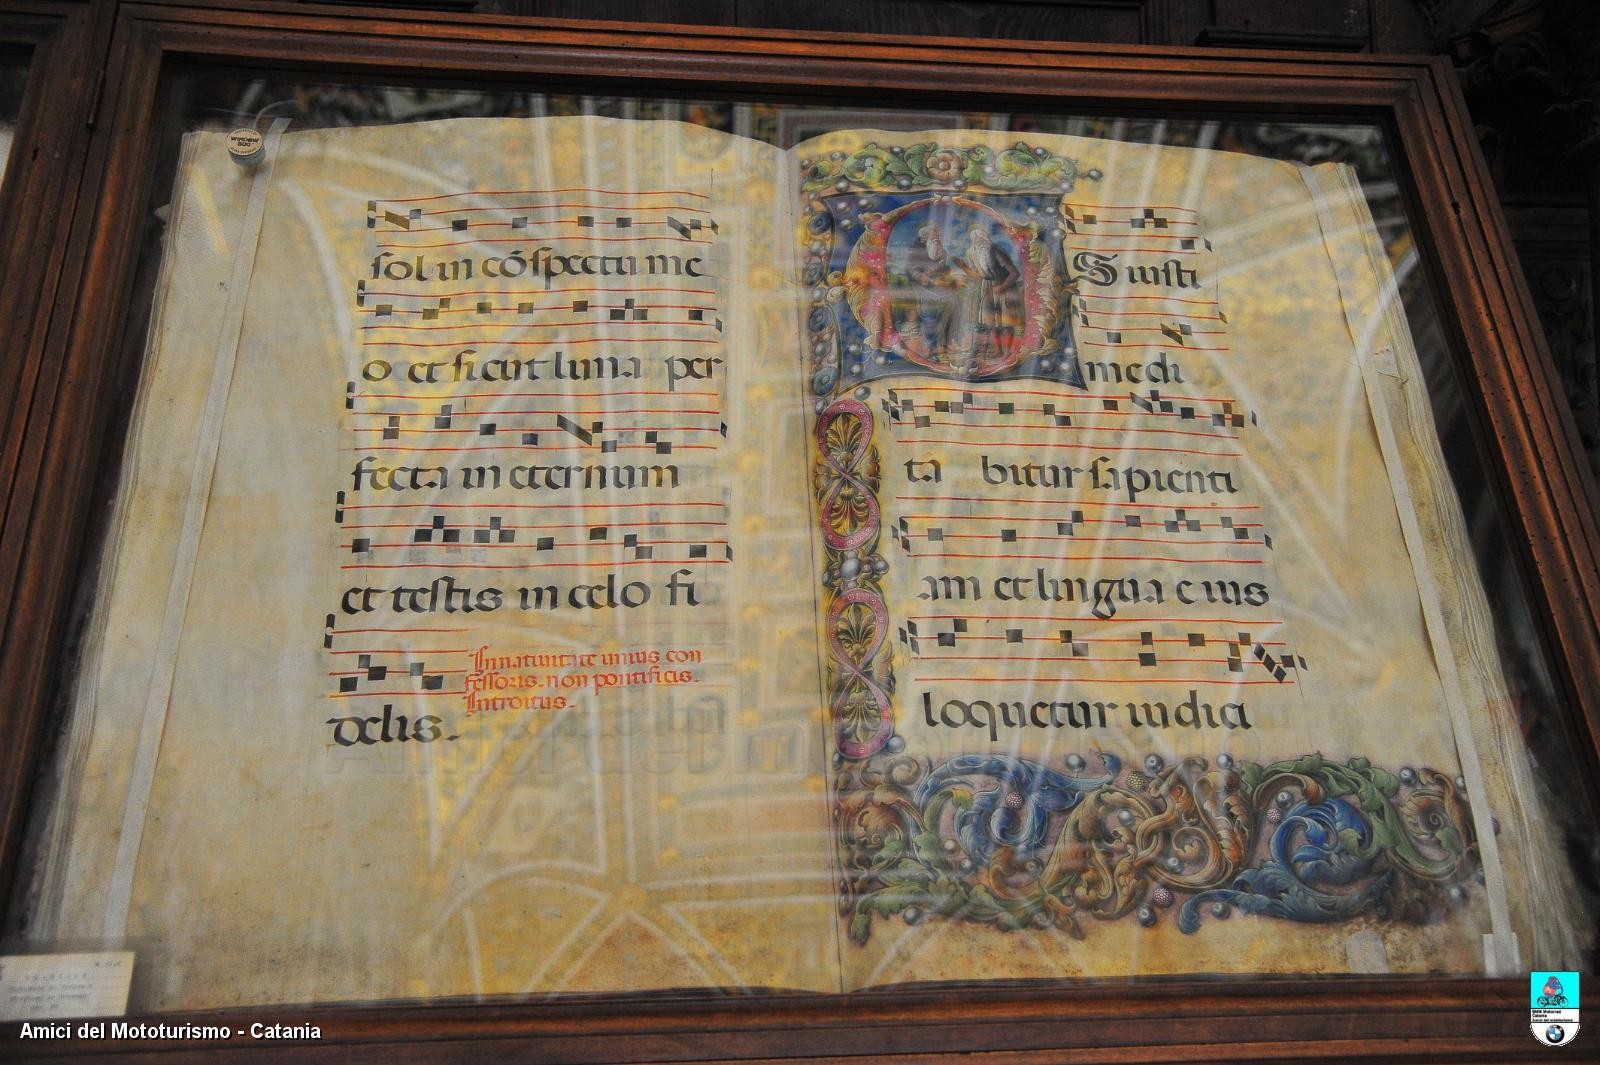 WINDOW
BUG
sol in cōspectu me
o et sicut luna per
fecta in eternum
et testis in celo fi
delis.
In natiuitate unius con
fessoris. non pontificis.
Introitus.
O S iusti
medi
ta bitur sapienti
am et lingua eius
loquetur iudici
Amici del Mototurismo - Catania
BMW Motorrad
Catania
Amici del mototurismo